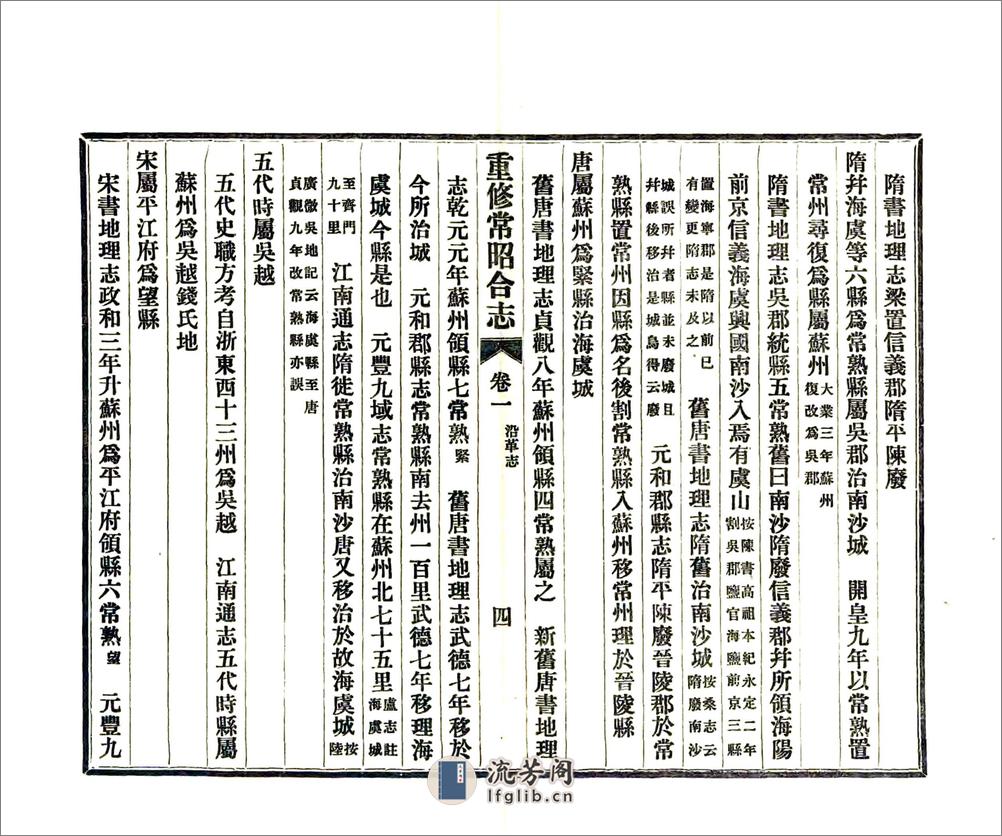 隋書地理志梁置信義郡隋平陳廢
隋幷海虞等六縣爲常熟縣屬吳郡治南沙城　開皇九年以常熟置
常州尋復爲縣屬蘇州大業三年蘇州復改爲吳郡
隋書地理志吳郡統縣五常熟舊曰南沙隋廢信義郡幷所領海陽
前京信義海虞興國南沙入焉有虞山按陳書高祖本紀永定二年割吳郡鹽官海鹽前京三縣
置海寧郡是隋以前已有變更隋志未及之　舊唐書地理志隋舊治南沙城按桑志云隋廢南沙
城誤所幷者縣並未廢城且幷縣後移治是城烏得云廢　元和郡縣志隋平陳廢晉陵郡於常
熟縣置常州因縣爲名後割常熟縣入蘇州移常州理於晉陵縣
唐屬蘇州爲緊縣治海虞城
舊唐書地理志貞觀八年蘇州領縣四常熟屬之　新舊唐書地理
重修常昭合志　卷一　沿革志　四
志乾元元年蘇州領縣七常熟緊　舊唐書地理志武德七年移於
今所治城　元和郡縣志常熟縣南去州一百里武德七年移理海
虞城今縣是也　元豐九域志常熟縣在蘇州北七十五里盧志註海虞城
至齊門九十里　江南通志隋徙常熟縣治南沙唐又移治於故海虞城按陸
廣微吳地記云海虞縣至唐貞觀九年改常熟縣亦誤
五代時屬吳越
五代史職方考自浙東西十三州爲吳越　江南通志五代時縣屬
蘇州爲吳越錢氏地
宋屬平江府爲望縣
宋書地理志政和三年升蘇州爲平江府領縣六常熟望　元豐九
流芳阁
lfglib.cn